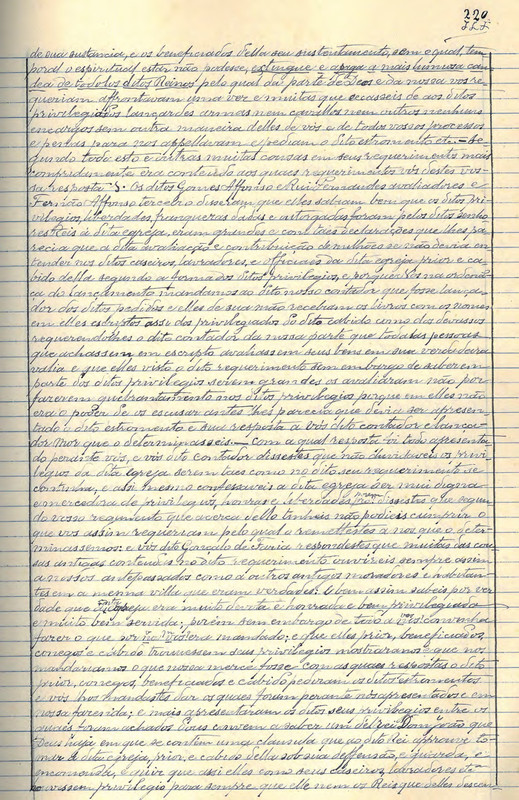 220
de sua sustancia, e os beneficiados della seu sustentamento, sem o qual, tem-
poral o espiritual estar não podesse, extingue e apaga a mais lumiosa can-
dea de todolos ditos Reinos pelo qual da parte de Deos e da nossa vos re-
queriam afrontavam uma vez e muitas que escasseis de aos ditos
privilegiados lançardes armas nem cavallos nem outros nenhuns
encargos sem outra maneira delles de vós e de todos vossos processos
e penas para nos appellavam e pediam o dito estromento etc. — Se-
gundo todo esto e outras muitas cousas em seus requerimentos mais
compridamente era conteudo aos quaes requerimentos vós destes vos-
sa resposta S. Os ditos Gomes Affonso e Rui Fernandes avaliadores e
Fernão Affonso terceiro disseram que elles sabiam bem que os ditos pri-
vilegios, liberdades, franquezas dadas e outorgadas foram pelos ditos senho-
res Reis á dita egreja, eram grandes e com taes declarações que lhes pa-
recia que a dita avaliação e contribuição de nulhas se não devia en-
tender nos ditos caseiros, lavradores, e officiaes da dita egreja prior e ca-
bido della segundo a forma dos ditos privilegios, e porque Nós na ordenan-
ça do lançamento mandamos ao dito nosso contador que fosse lança-
dor dos ditos pedidos e elles de sua mão recebam os livros com os nomes
em elles escriptos assi dos privilegiados do dito cabido como dos devassos
requerendolhes o dito contador da nossa parte que todalas pessoas
que achassem em escripto avaliassem seus bens em sua verdadeira
valia e que elles visto o dito requerimento sem embargo de saberem
parte dos ditos privilegios serem grandes os avaliaram não por
fazerem quebrantamento nos ditos privilegios porque em elles não
era o poder de os escusar antes lhes parecia que devia ser apresen-
tado o dito estromento e sua resposta a vós dito contador e lança-
dor mór que o determinasseis. — Com a qual resposta foi todo apresenta-
do perante vós, e vós dito contador dissestes que não duvidaveis os privi-
legios da dita egreja serem taes como no dito seu requerimento se
continha, e assi mesmo confessaveis a dita egreja ser mui digna
e merecedora de privilegios, honras e liberdades, mas dissestes que segun-
do vosso regimento que acerca dello tinheis não podieis cumprir o
que vos assim requeriam pelo qual o remettestes a nos que o deter-
minassemos: e vós dito Gonçalo de Faria respondestes que muitas das cou-
sas antigas contendas no dito requerimento ouvireis sempre assim
a nossos antepassados como a outros antigos moradores e habitan-
tes em a mesma villa que eram verdades: e bem assim sabeis por ver-
dade que a dita egreja era muito devota e honrada e bem privilegiada
e muito bem servida; porém sem embargo de todo a vós convinha
fazer o que por nós vos era mandado; e que elles prior, beneficiados,
conegos e cabido trouxessem seus privilegios mostraramos e que nos
mandariamos o que nossa mercê fosse. Com as quaes respostas o dito
prior, conegos, beneficiados e cabido pediram os ditos estromentos
e vós lhos mandastes dar os quaes foram perante nós apresentados em
nossa fazenda; e mais apresentaram os ditos seus privilegios entre os
quaes foram achados dous convem a saber um delrei Dom João que
Deus haja em que se contem uma clausula que ao dito Rei aprouve to-
mar a dita egreja, prior, e cabido della sob sua deffensão, e guarda, e
encomenda, e quiz que assi elles como seus caseiros, lavradores etc.
houvessem privilegio para sempre que elle nem os Reis que delles descen-